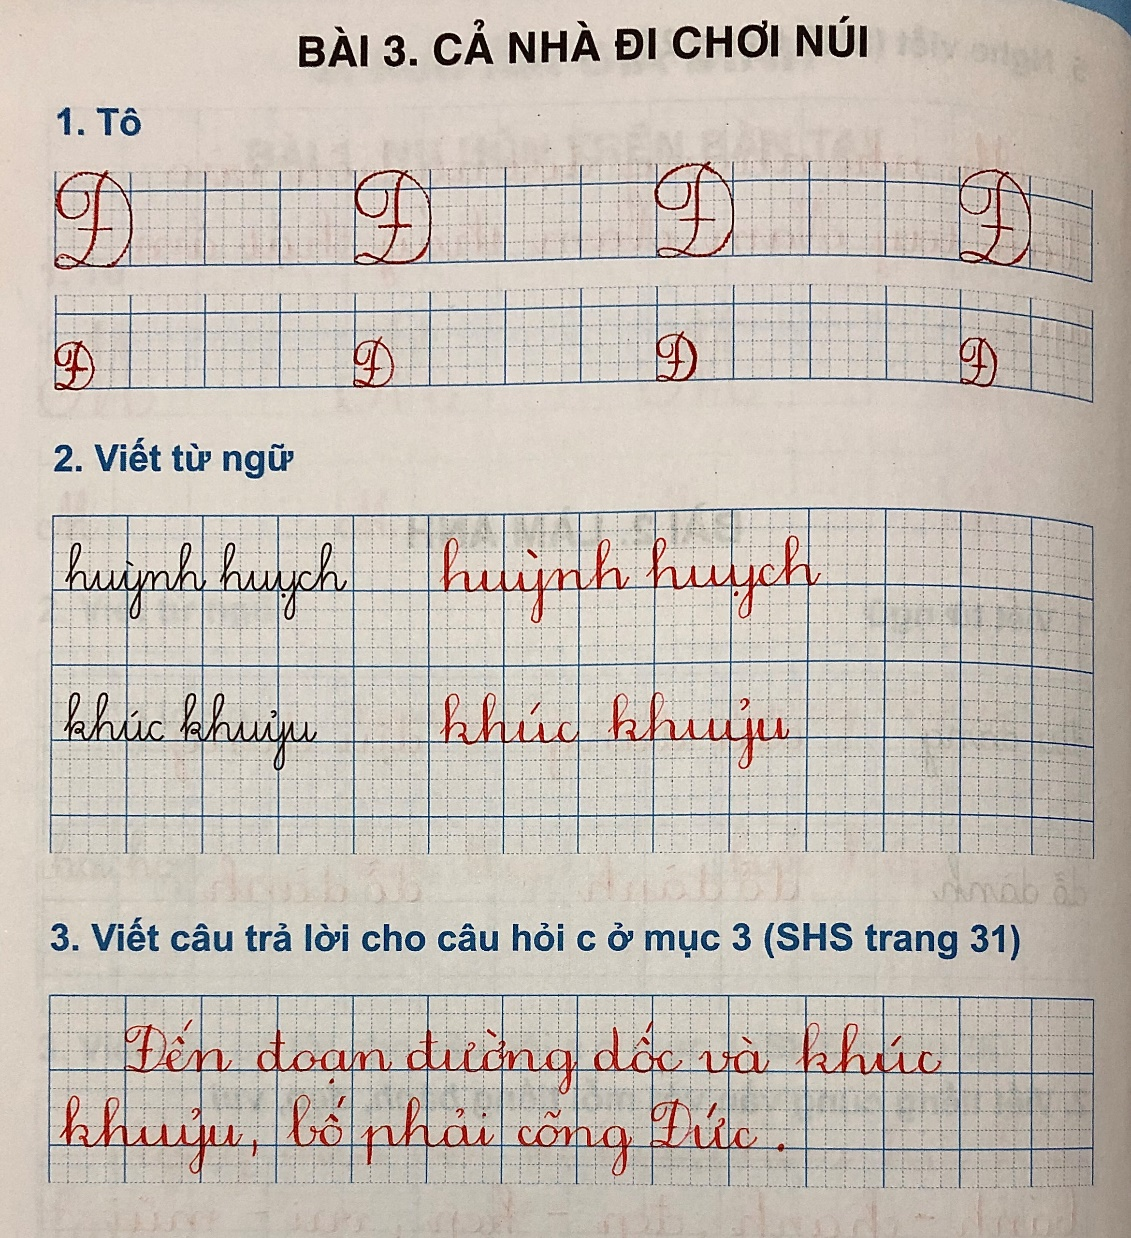 BÀI 3. CẢ NHÀ ĐI CHƠI NÚI
1. Tô
Đ Đ Đ Đ
Đ Đ Đ Đ
2. Viết từ ngữ
huỳnh huỵch huỳnh huỵch
khúc khuỷu khúc khuỷu
3. Viết câu trả lời cho câu hỏi c ở mục 3 (SHS trang 31)
Đến đoạn đường dốc và khúc
khuỷu, bố phải cõng Đức.